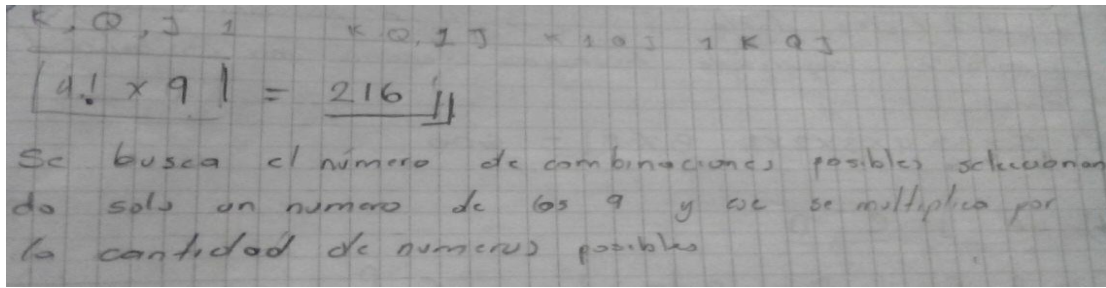 K, Q, J 1 K Q, 1 J K 1 Q J 1 K Q J
4! x 9 = 216
Se busca el número de combinaciones posibles seleccionan
do solo un numero de los 9 y ese se multiplica por
la cantidad de numeros posibles